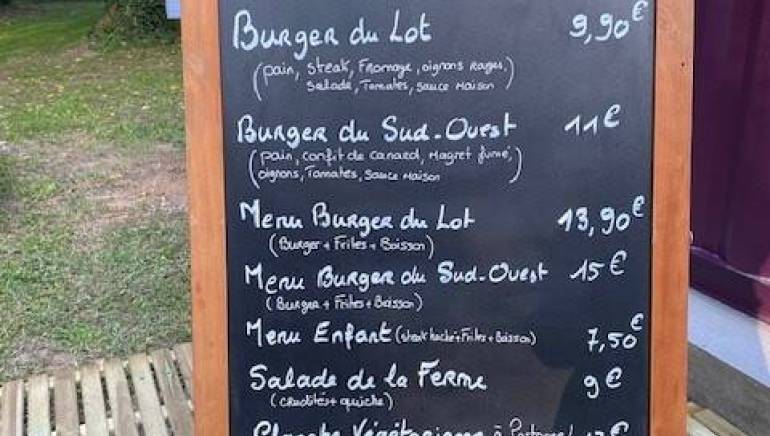 Burger du Lot 9,90€
(pain, Steak, Fromage, oignons Rouges,
Salade, Tomates, Sauce Maison)
Burger du Sud-Ouest 11€
(pain, confit de canard, Magret fumé,
oignons, Tomates, Sauce Maison)
Menu Burger du Lot 13,90€
(Burger + Frites + Boisson)
Menu Burger du Sud-Ouest 15€
(Burger + Frites + Boisson)
Menu Enfant (steak haché + Frites + Boisson) 7,50€
Salade de la Ferme 9€
(crudités + quiche)
Végétarienne à Partager